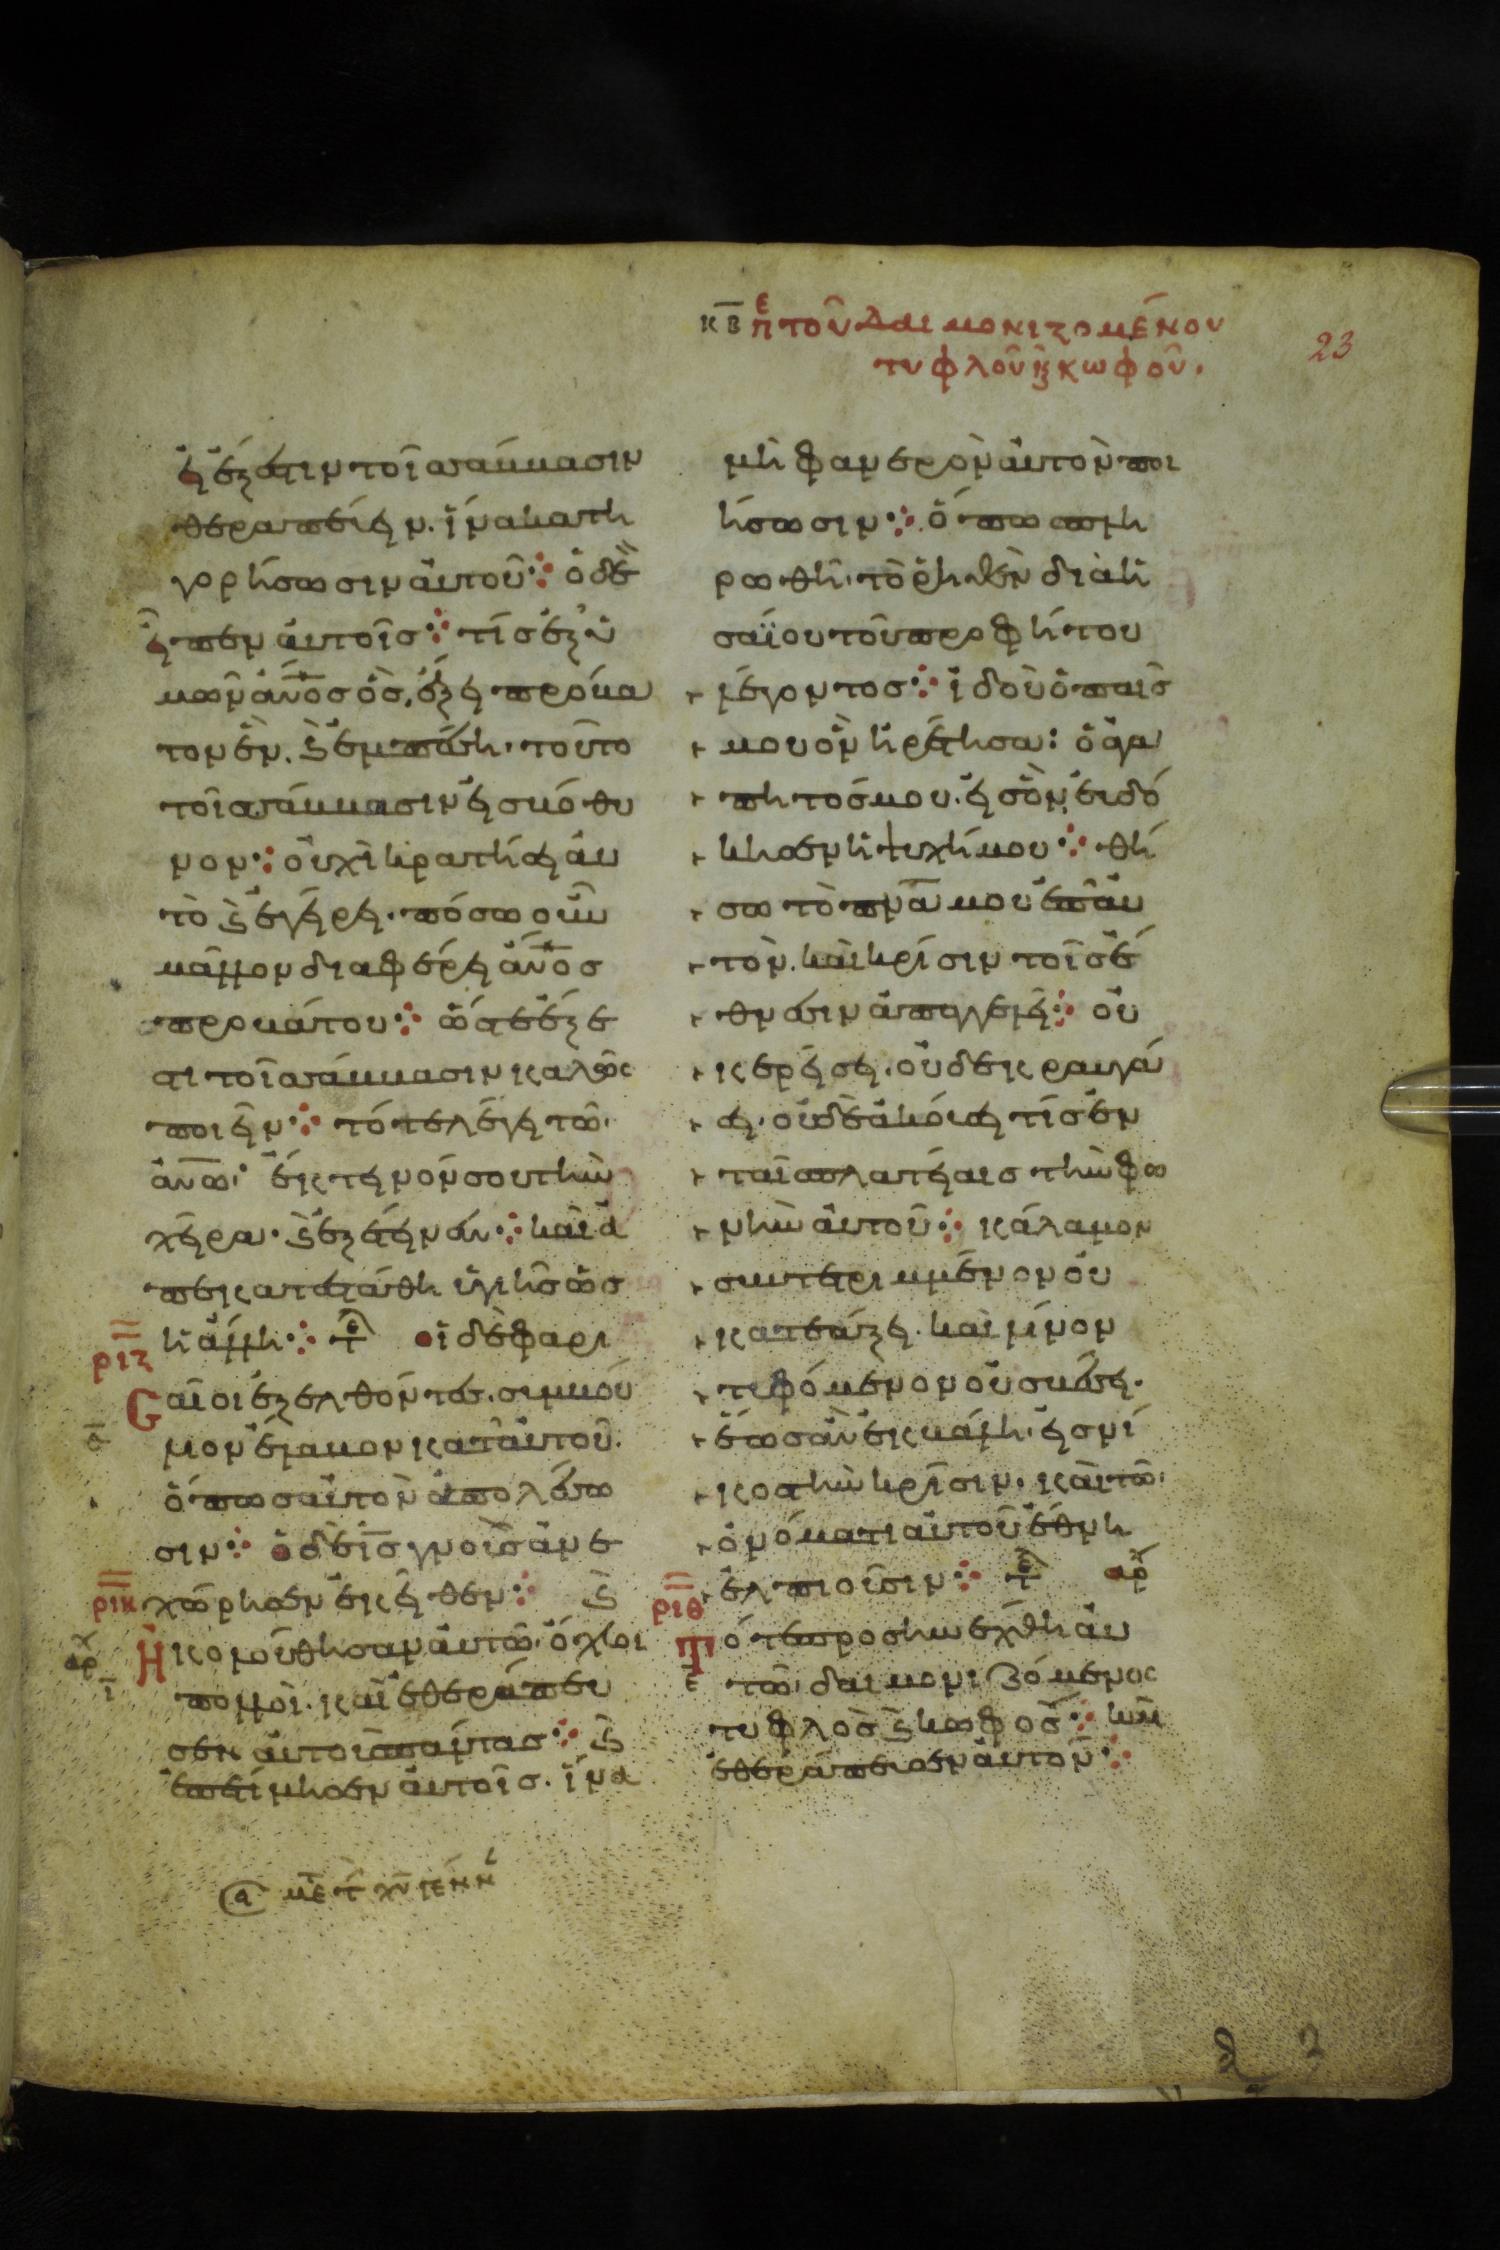 κβ πε τοῦ δαιμονιζομένου
τυφλοῦ κ κωφοῦ.
23
εἰ ἔξεστιν τοῖς σάββασιν
θεραπεύειν. ἵνα κατη
γορήσωσιν αὐτοῦ ὁ δὲ
εἶπεν αὐτοῖς τίς ἐξ ὑ
μῶν ἄνος ὃς, ἕξει πρόβα
τον ἓν. κ ἐμπέσῃ. τοῦτο
τοῖς σάββασιν εἰς βόθυ
νον οὐχὶ κρατήσει αὐ
τὸ κ ἐγείρει. πόσω οὖν
μᾶλλον διαφέρει ἄνος
προβάτου ὥστε ἔξε
στι τοῖς σάββασιν καλῶς
ποιεῖν τότε λέγει τῶ
ἀνω. ἔκτεινόν σου τὴν
χεῖρα. κ ἐξέτεινεν καὶ ἀ
πεκατεστάθη ὑγιὴς ὡς
ἡ ἄλλη τε οἱ δὲ φαρι
ριζ
σαῖοι ἐξελθόντες. συμβού
λιον ἔλαβον κατ αὐτοῦ.
ὅπως αὐτὸν ἀπολέσω
σιν ὁ δὲ ις γνοὺς ἀνε
χώρησεν ἐκεῖθεν κ
ριη
ἠκολούθησαν αὐτῶ ὄχλοι
αρχ
πολλοὶ. καὶ ἐθεράπευ
σεν αὐτοὺς πάντας κ
ἐπετίμησεν αὐτοῖς. ἵνα
μὴ φανερὸν αὐτὸν ποι
ήσωσιν ὅπως πλη
ρωθῆ. τὸ ῥηθὲν διὰ ἡ
σαΐου τοῦ προφήτου
λέγοντος ἰδοὺ ὁ παῖς
μου ὃν ἡρέτησα: ὁ ἀγα
πητός μου. εἰς ὃν εὐδό
κησεν ἡ ψυχή μου θή
σω τὸ πνα μου ἐπ αὐ
τὸν. καὶ κρίσιν τοῖς ἔ
θνεσιν ἀπαγγελεῖ οὐ
κ ἐρίσει. οὐδὲ κραυγά
σει. οὐδὲ ἀκούσει τίς ἐν
ταῖς πλατείαις τὴν φω
νὴν αὐτοῦ κάλαμον
συντετριμμένον οὐ
κατεάξει. καὶ λίνον
τυφόμενον οὐ σβέσει.
ἕως ἂν ἐκβάλη. εἰς νί
κος τὴν κρίσιν. καὶ τῶ
ὀνόματι αὐτοῦ ἔθνη
ἐλπιοῦσιν τε αρχ
ριθ
τότε προσηνέχθη αὐ
ε
τῶ. δαιμονιζόμενος
τυφλὸς κ κωφός καὶ
ἐθεράπευσεν αὐτον